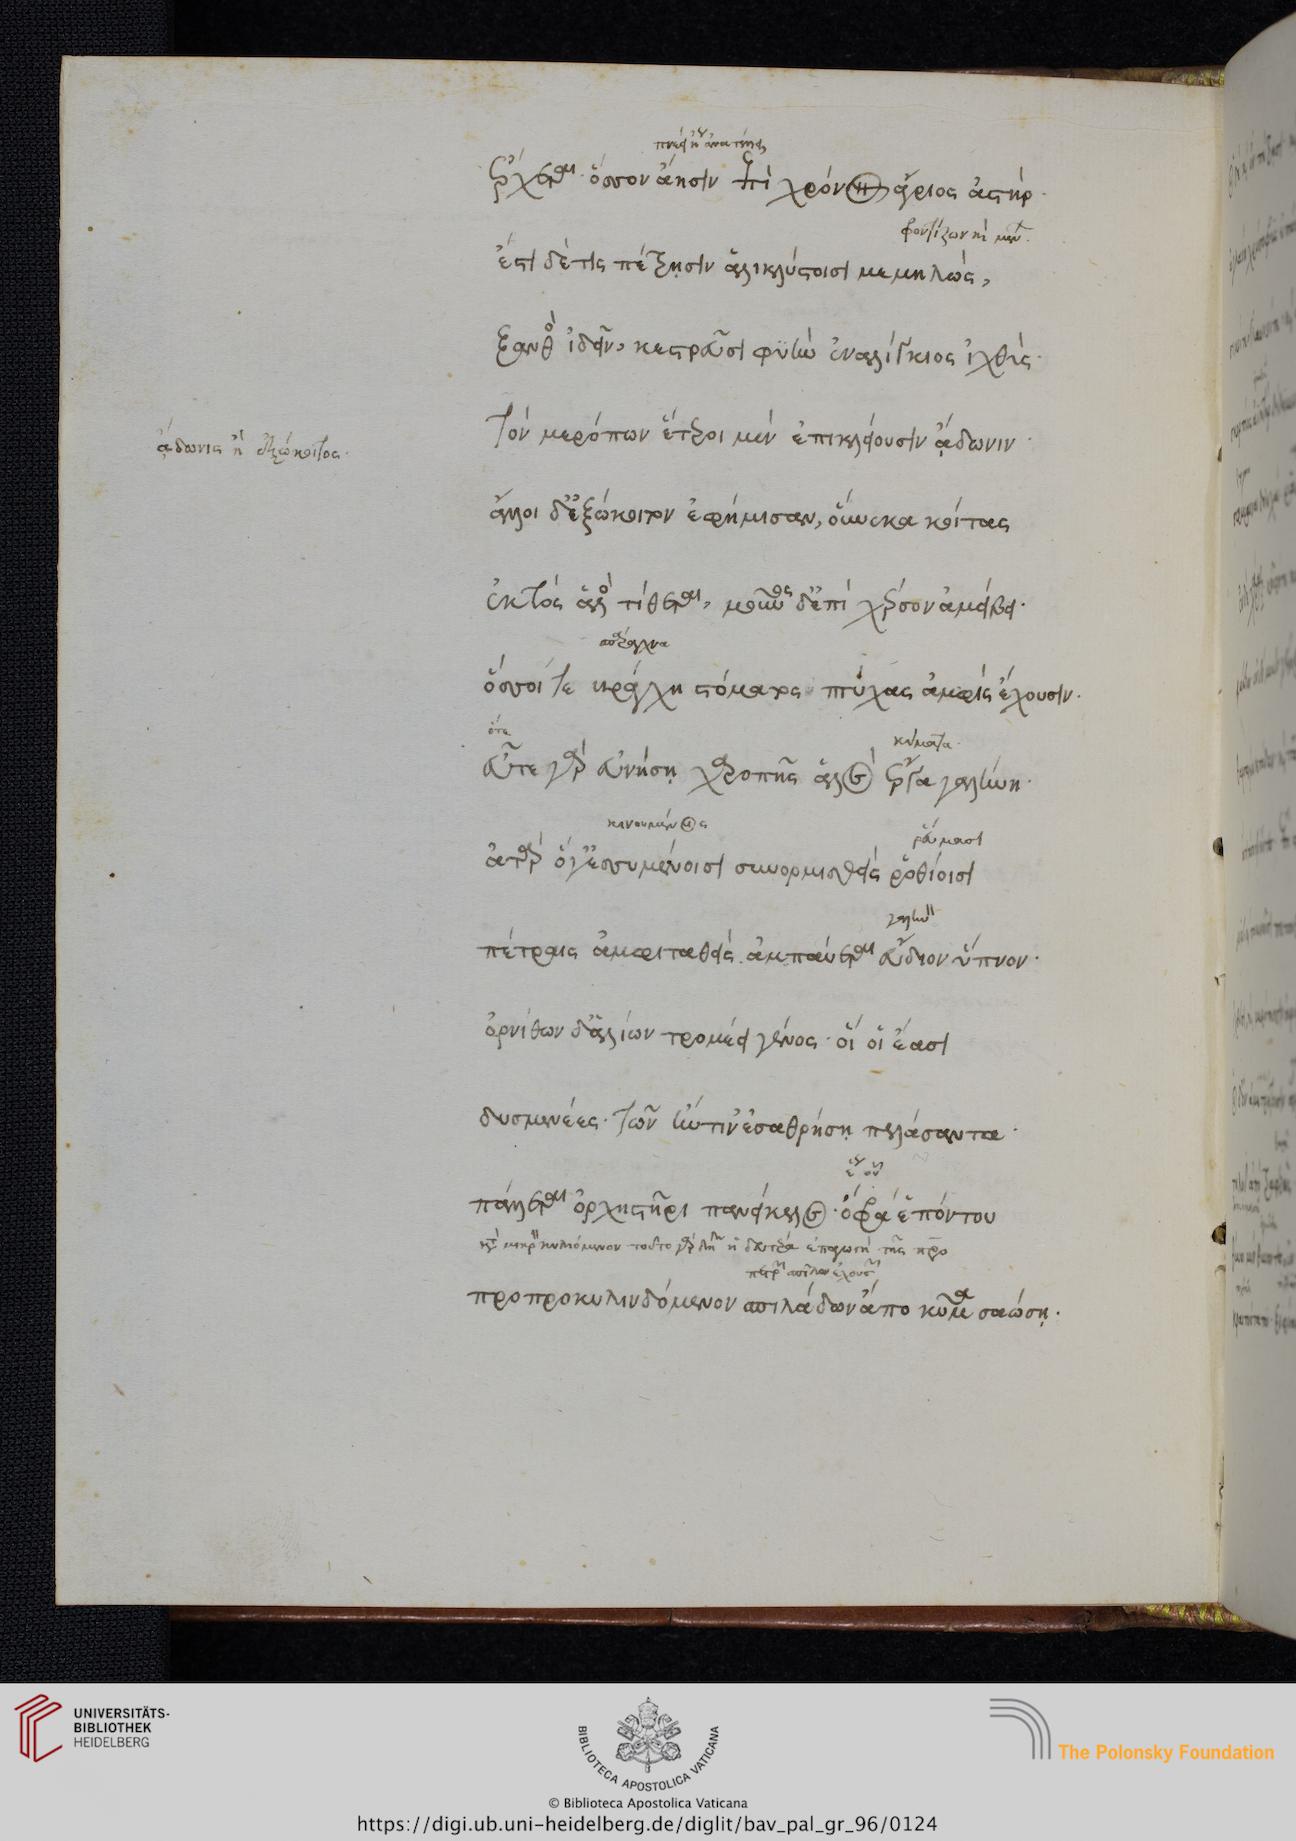 πνέει ἢ ἀνατέλλει
ἔρχεται· ὅσσον ἄησιν ἐπὶ χρόνον ἄγριος ἀστήρ·
φροντίζων καὶ
ἔστι δέ τις πέζῃσιν ἁλικλύστοισι μεμηλώς,
ξανθὸς ἰδεῖν, κεστρεῦσι φυὴν ἐναλίγκιος ἰχθύς·
τὸν μερόπων ἕτεροι μὲν ἐπικλείουσιν ἄδωνιν·
ἄδωνις ἢ ἐξώκοιτος·
ἄλλοι δ' ἐξώκοιτον ἐφήμισαν, οὕνεκα κοίτας
ἐκτὸς ἁλὸς τίθεται, μοῦνος δ' ἐπὶ χέρσον ἀμείβει·
ὅσσοι τε στόματος πτύχας ἀμφὶς ἔχουσιν·
ὅτε
κύματα·
εὖτε γὰρ εὐνήσῃ χαροπῆς ἁλὸς ἔργα γαλήνη·
κινουμένοις
ῥεύμασι
αὐτὰρ ὅγ' ἐσσυμένοισι συνορμισθεὶς ῥοθίοισι
πέτραις ἀμφιταθεὶς ἀμπαύεται εὔδιον ὕπνον·
ὀρνίθων δ' ἁλίων τρομέει γένος· οἵ οἱ ἔασι
δυσμενέες· τῶν ἤν τιν' ἐσαθρήσῃ πελάσαντα·
πάλλεται ὀρχηστῆρι πανείκελος· ὄφρα ἑ πόντου
προπροκυλινδόμενον σπιλάδων ἄπο κῦμα σαώσῃ·
UNIVERSITÄTS-
BIBLIOTHEK
HEIDELBERG
BIBLIOTECA APOSTOLICA VATICANA
© Biblioteca Apostolica Vaticana
The Polonsky Foundation
https://digi.ub.uni-heidelberg.de/diglit/bav_pal_gr_96/0124